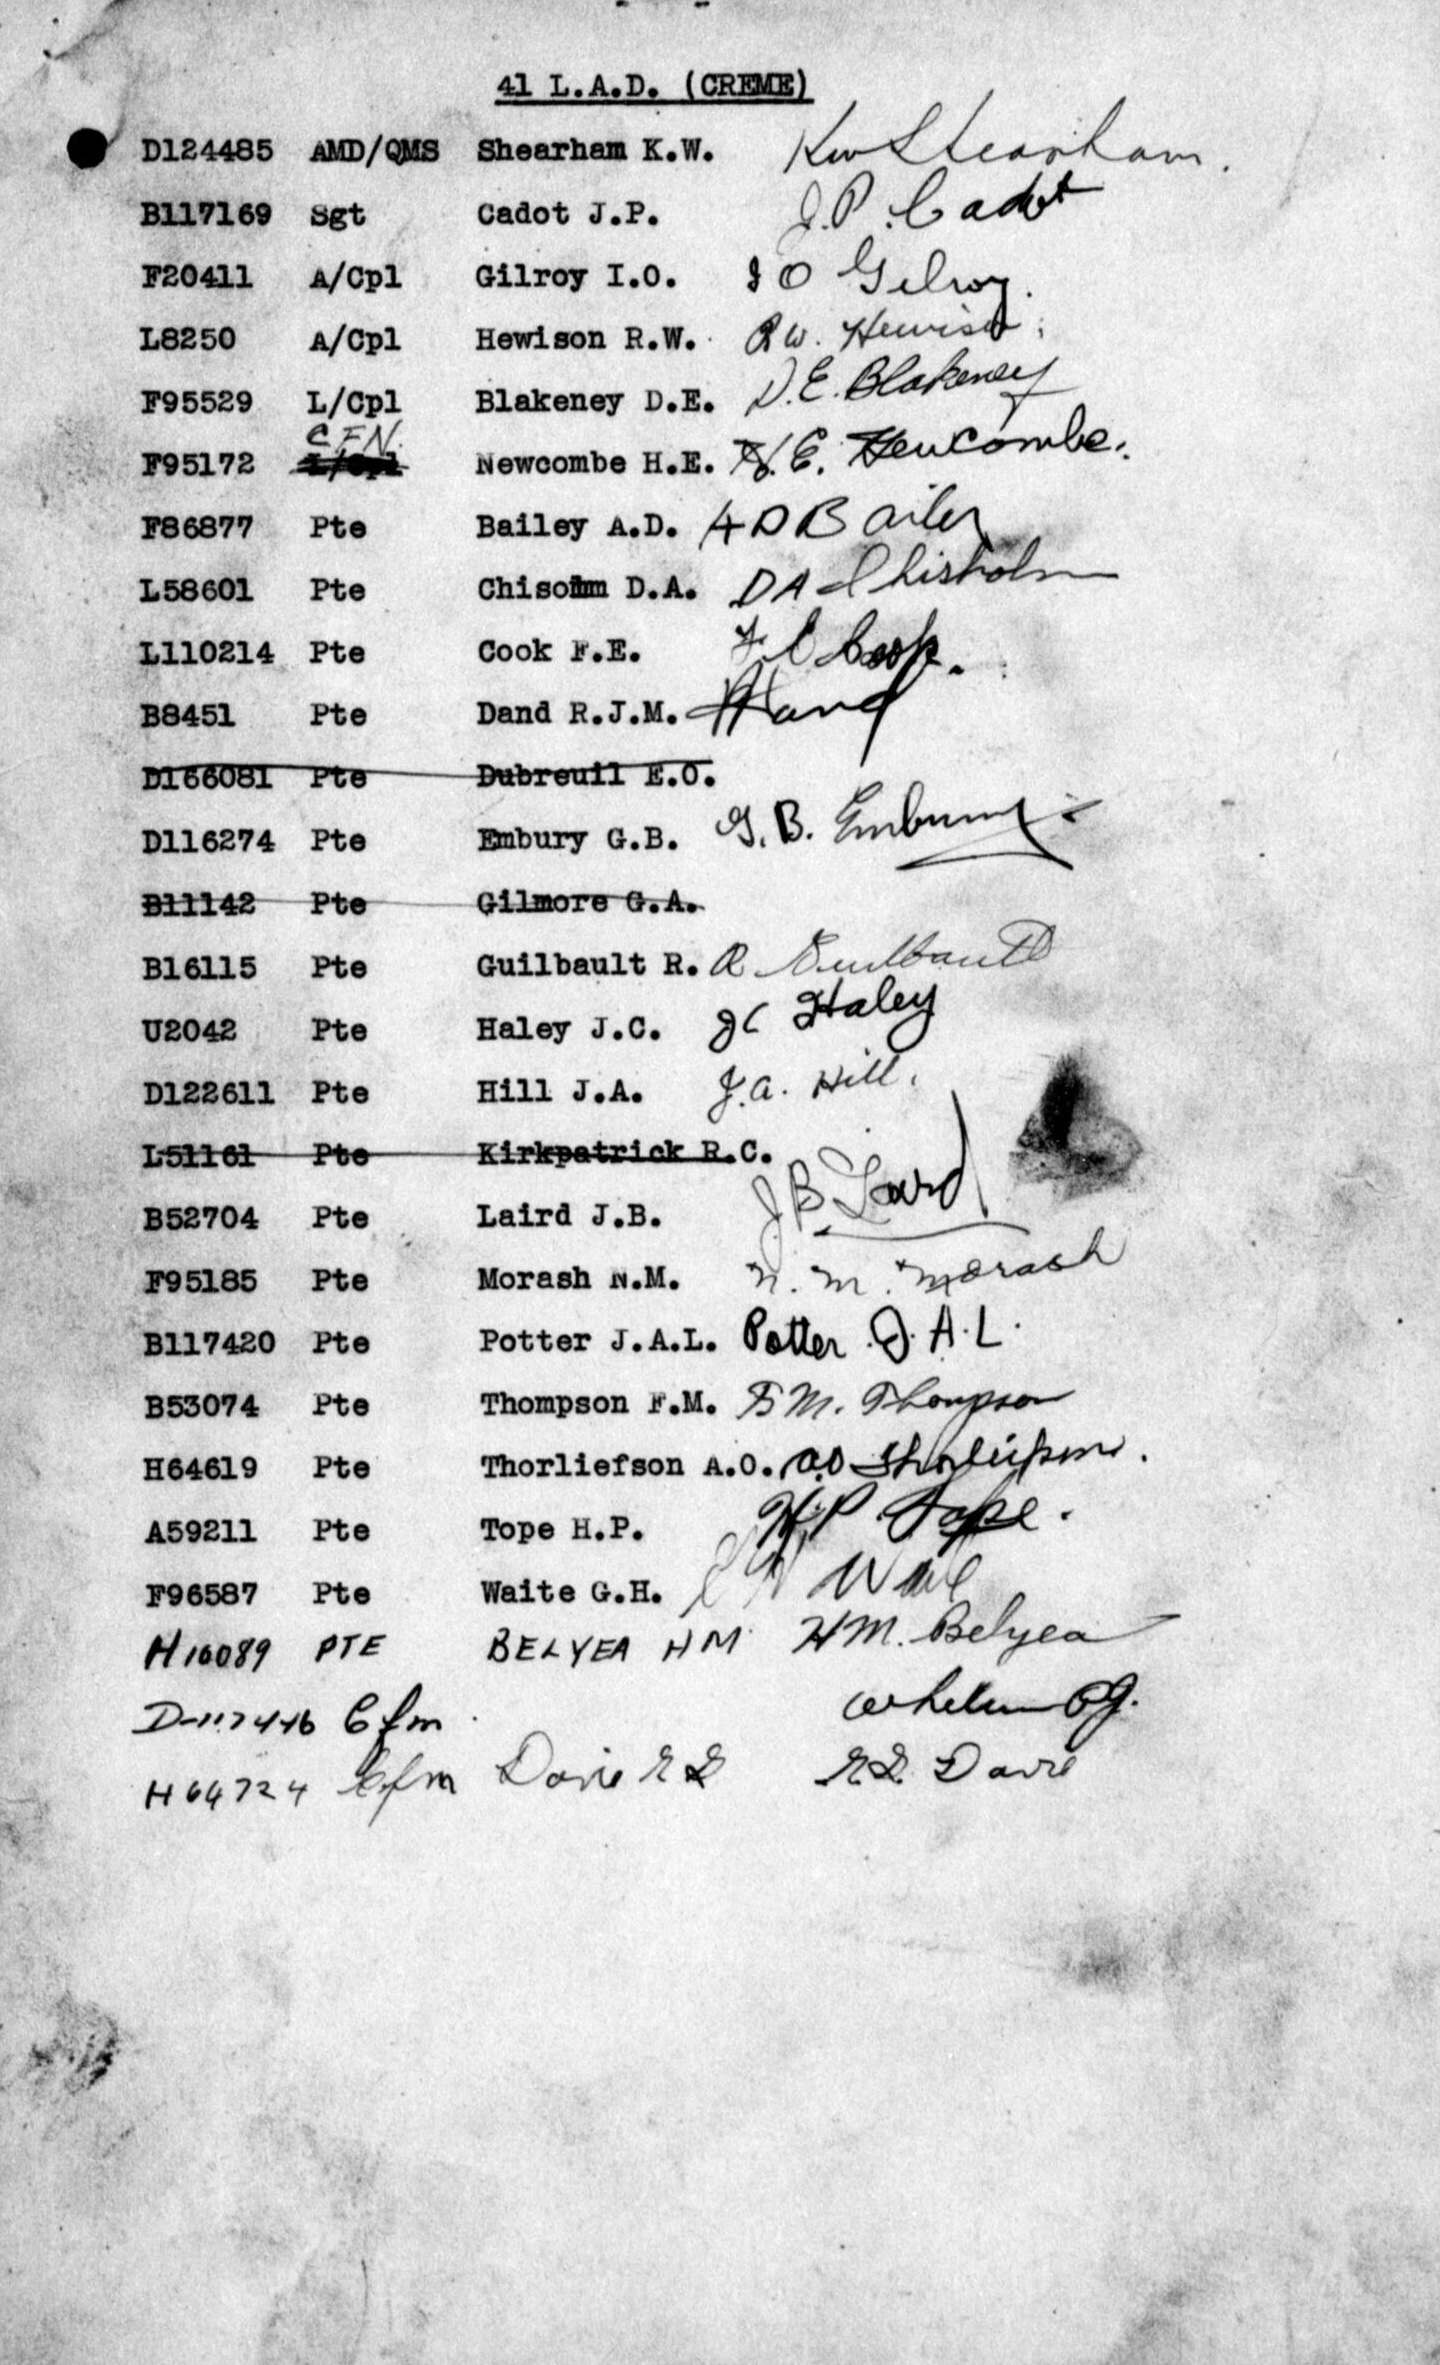 41 L.A.D. (CREME)
D124485 AMD/QMS Shearham K.W. KW Shearham.
B117169 Sgt Cadot J.P. J.P. Cadot
F20411 A/Cpl Gilroy I.O. I O Gilroy.
L8250 A/Cpl Hewison R.W. R.W. Hewison
F95529 L/Cpl Blakeney D.E. D.E. Blakeney
CFN.
F95172 L/Cpl Newcombe H.E. H.E. Newcombe.
F86877 Pte Bailey A.D. A D Bailey
L58601 Pte Chisolm D.A. D A Chisholm
L110214 Pte Cook F.E. F E Cook.
B8451 Pte Dand R.J.M. Dand
D166081 Pte Dubreuil E.O.
D116274 Pte Embury G.B. G.B. Embury
B11142 Pte Gilmore G.A.
B16115 Pte Guilbault R. R Guilbault
U2042 Pte Haley J.C. JC Haley
D122611 Pte Hill J.A. J.A. Hill.
L51161 Pte Kirkpatrick R.C.
B52704 Pte Laird J.B. J B Laird
F95185 Pte Morash N.M. N.M. Morash
B117420 Pte Potter J.A.L. Potter J.A.L.
B53074 Pte Thompson F.M. F M. Thompson
H64619 Pte Thorliefson A.O. A O Thorliefson.
A59211 Pte Tope H.P. H.P Tope.
F96587 Pte Waite G.H. G H Waite
H10089 PTE BELYEA HM HM. Belyea
D-117446 Cfm Whelan
H64724 Cfm Davie